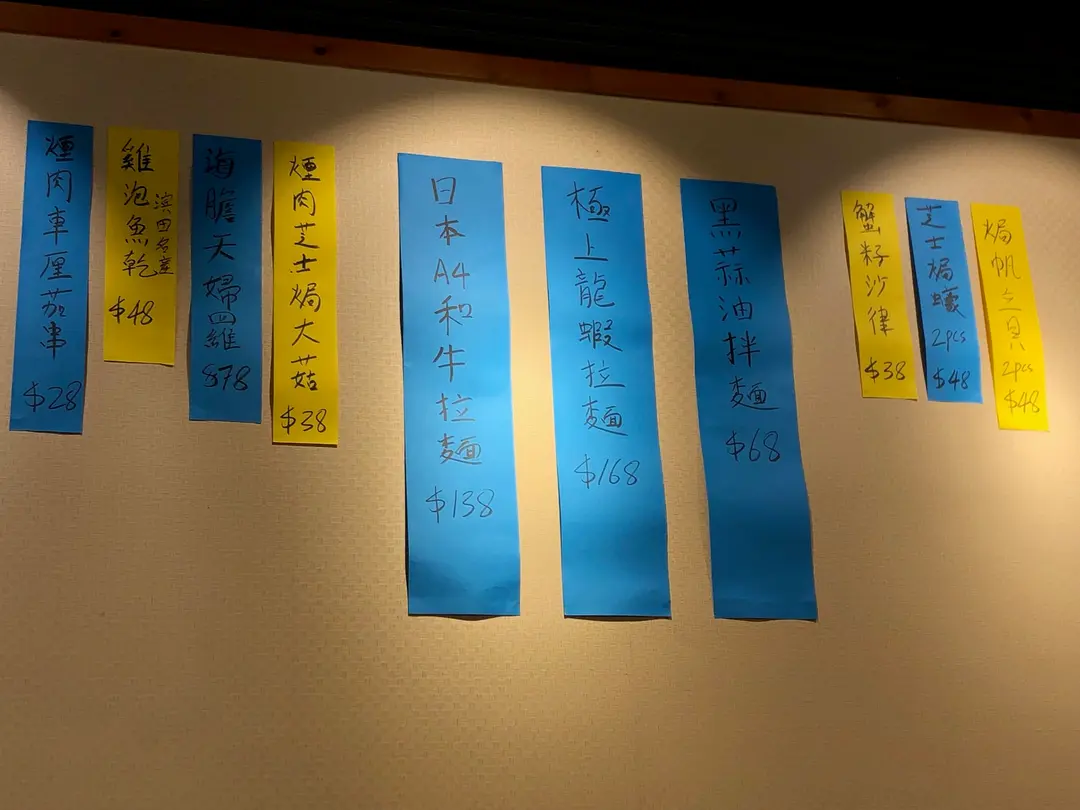 煙肉車厘茄串
$28
雞泡魚乾
濱田名產
$48
海膽天婦羅
$78
煙肉芝士焗大菇
$38
日本A4和牛拉麵
$138
極上龍蝦拉麵
$168
黑蒜油拌麵
$68
蟹籽沙律
$38
芝士焗蠔
2pcs
$48
焗帆立貝
2pcs
$48